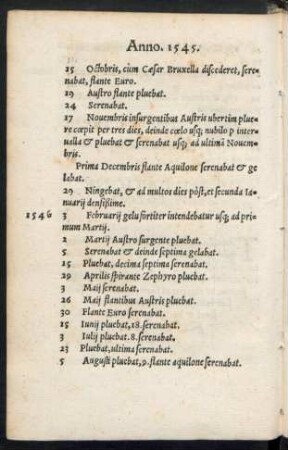 Anno. 1545.
15 Octobris, cùm Cæsar Bruxella discederet, sere-
nabat, flante Euro.
19 Austro flante pluebat.
24 Serenabat.
17 Nouembris insurgentibus Austris ubertim plue
re cœpit per tres dies, deinde cœlo usq; nubilo p inter-
ualla & pluebat & serenabat usq; ad ultimā Nouem-
bris.
Prima Decembris flante Aquilone serenabat & ge
labat.
29 Ningebat, & ad multos dies pòst, et secunda Ia-
nuarij densissime.
1546 3 Februarij gelu fortiter intendebatur usq; ad pri-
mum Martij.
2 Martij Austro surgente pluebat.
5 Serenabat & deinde septima gelabat.
15 Pluebat, decima septima serenabat.
29 Aprilis spirante Zephyro pluebat.
3 Maij serenabat.
26 Maij flantibus Austris pluebat.
30 Flante Euro serenabat.
15 Iunij pluebat, 18. serenabat.
3 Iulij pluebat. 8. serenabat.
23 Pluebat, ultima serenabat.
5 Augusti pluebat, 9. flante aquilone serenabat.